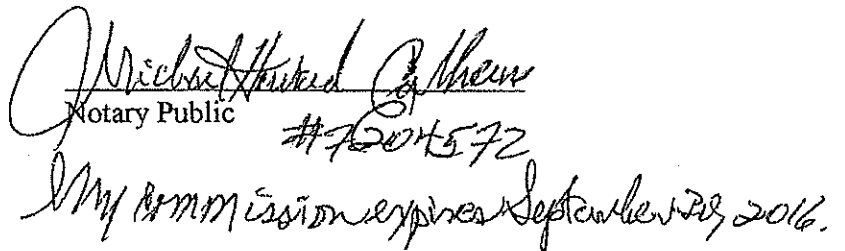 Michael Howard Calhoun
Notary Public
#7204572
My commission expires September 30, 2016.